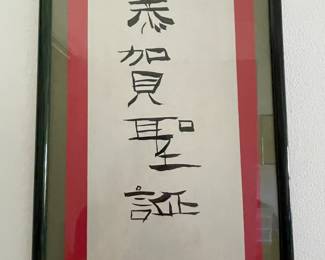 恭賀聖誕